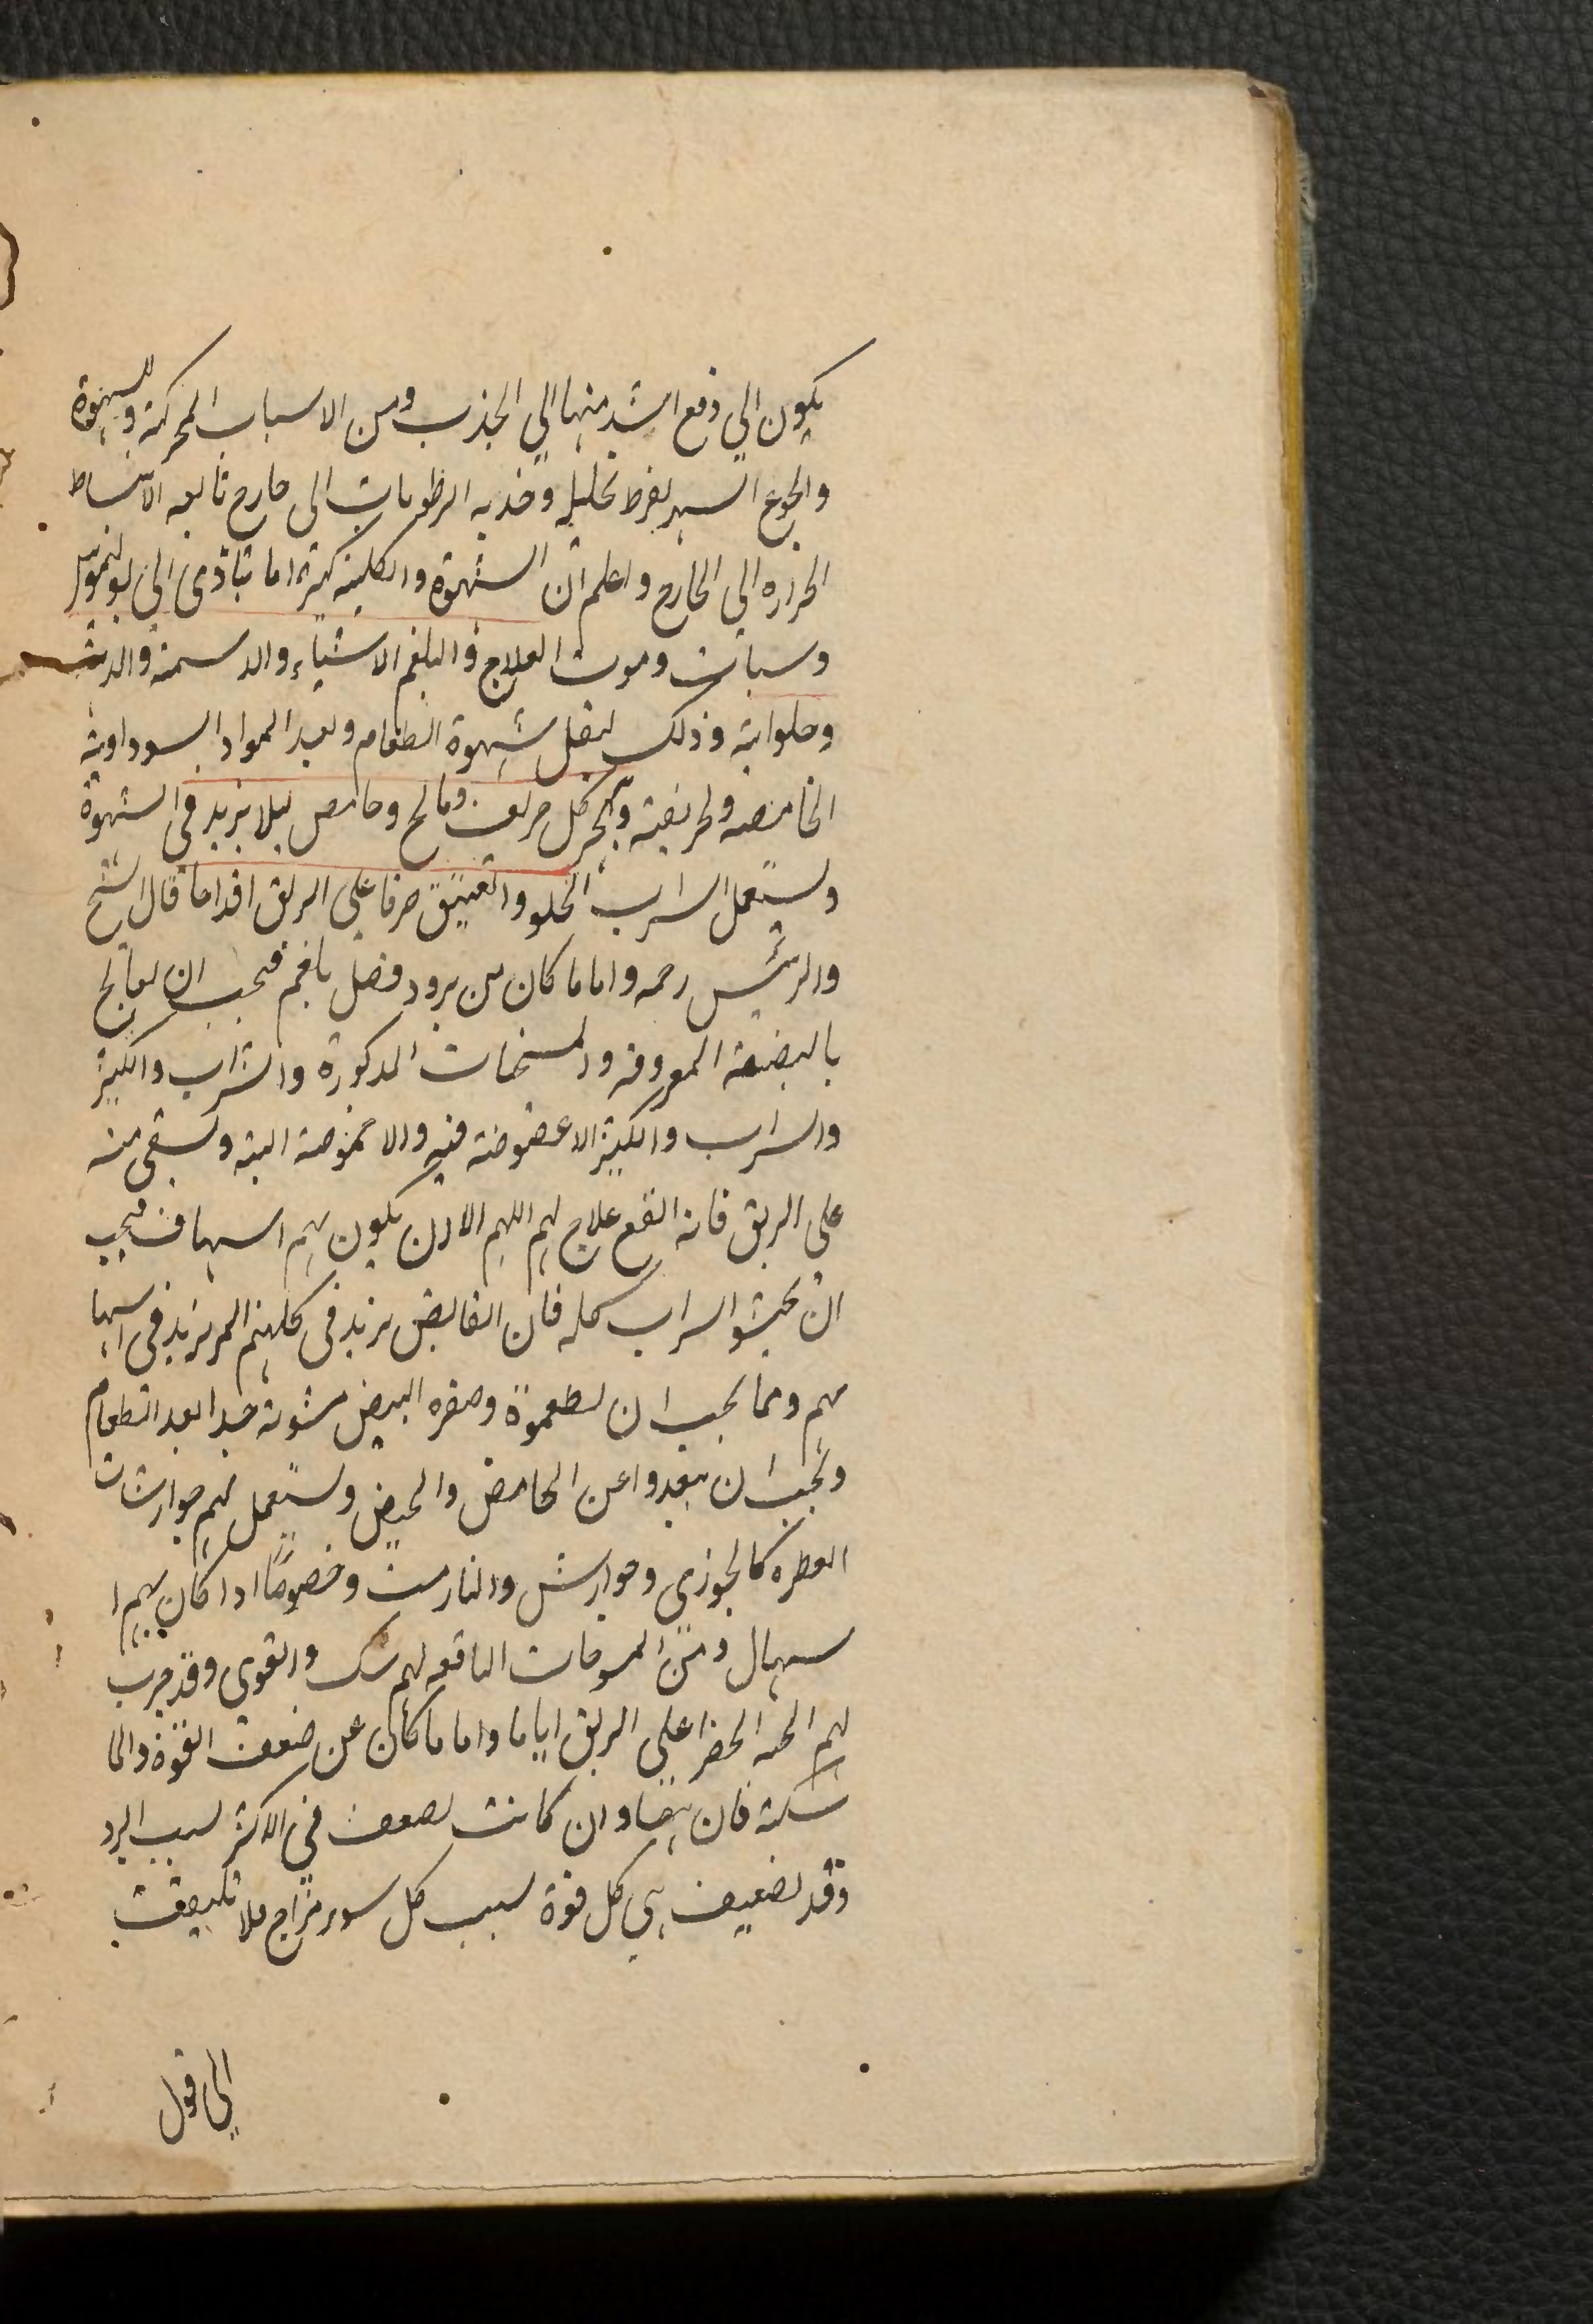 يكون الي دفع اشد منها الي الجذب ومن الاسباب المحركة وللشهوة
والجوع السهر بفرط تحليله وجذبه الرطوبات الى خارج تابعه الانبساط
الحراره الى الخارج واعلم ان الشهوة والكلبية كثيرا ما تتأدى الى بوليموس
وسبات وموت العلاج والبلغم الاشياء والدسمة
وحلواته وذلك ليقل شهوة الطعام وبعد المواد السوداوية
الحامضه ولحريفة وهجر كل حريف ومالح وحامض ليلا يزيد في الشهوة
ويستعمل الشراب الحلو والعتيق صرفا على الريق اقداحا قال الشيخ
والرئيس رحمه واما ما كان من برود فضل بلغم فيجب ان يعالج
بالبضعة المعروفه والمسخنات المذكورة والشراب والكثير
والشراب والكثير لا عفوصة فيه ولا حموضة البته ويسقى منه
علي الريق فانه انفع علاج لهم اللهم الا ان يكون بهم اسهال فيجب
ان يجتنبوا الشراب كله فان القابض يزيد في كلبهم المر يزيد في اسها
لهم ومما يجب ان يطعموة وصفره البيض مشوية جدا بعد الطعام
ويجب ان يبعدوا عن الحامض والحيض ويستعمل لهم جوارشات
العطره كالجوزي وجوارش والنارمشك وخصوصًا اذا كان بهم ا
سهال ومن المسوحات النافعه لهم مسك والقوي وقد جرب
لهم الحبه الخضرا على الريق اياما واما ما كان عن ضعف القوة والما
سكة فان بهضا وان كانت لضعف في الاكثر لسبب البرد
وقد تضعيف بي كل قوة لسبب كل سوء مزاج فلا تلتفت
الي قول